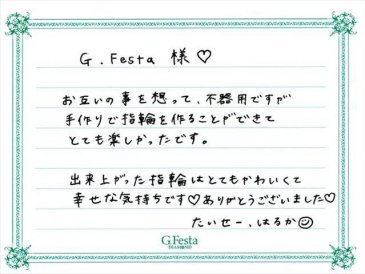 G.Festa 様♡
お互いの事を想って、不器用ですが
手作りで指輪を作ることができて
とても楽しかったです。
出来上がった指輪はとてもかわいくて
幸せな気持ちです♡ありがとうございました♡
たいせー、はるか☺
G.Festa
DIAMOND